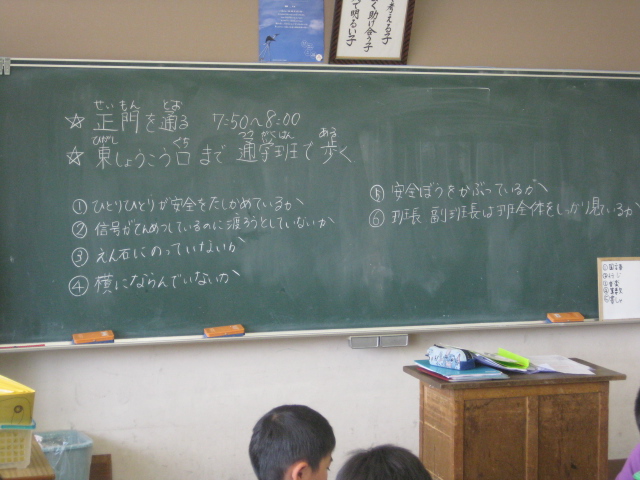 考える子
く助け合う子
で明るい子
せいもん とお
☆ 正門を通る 7:50~8:00
ひがし ぐち つうがくはん ある
☆ 東しょうこう口まで 通学班で歩く
① ひとりひとりが安全をたしかめているか
② 信号がてんめつしているのに渡ろうとしていないか
③ えん石にのっていないか
④ 横にならんでいないか
⑤ 安全ぼうをかぶっているか
⑥ 班長 副班長は班全体をしっかり見ているか
①国語
③音楽
④算数